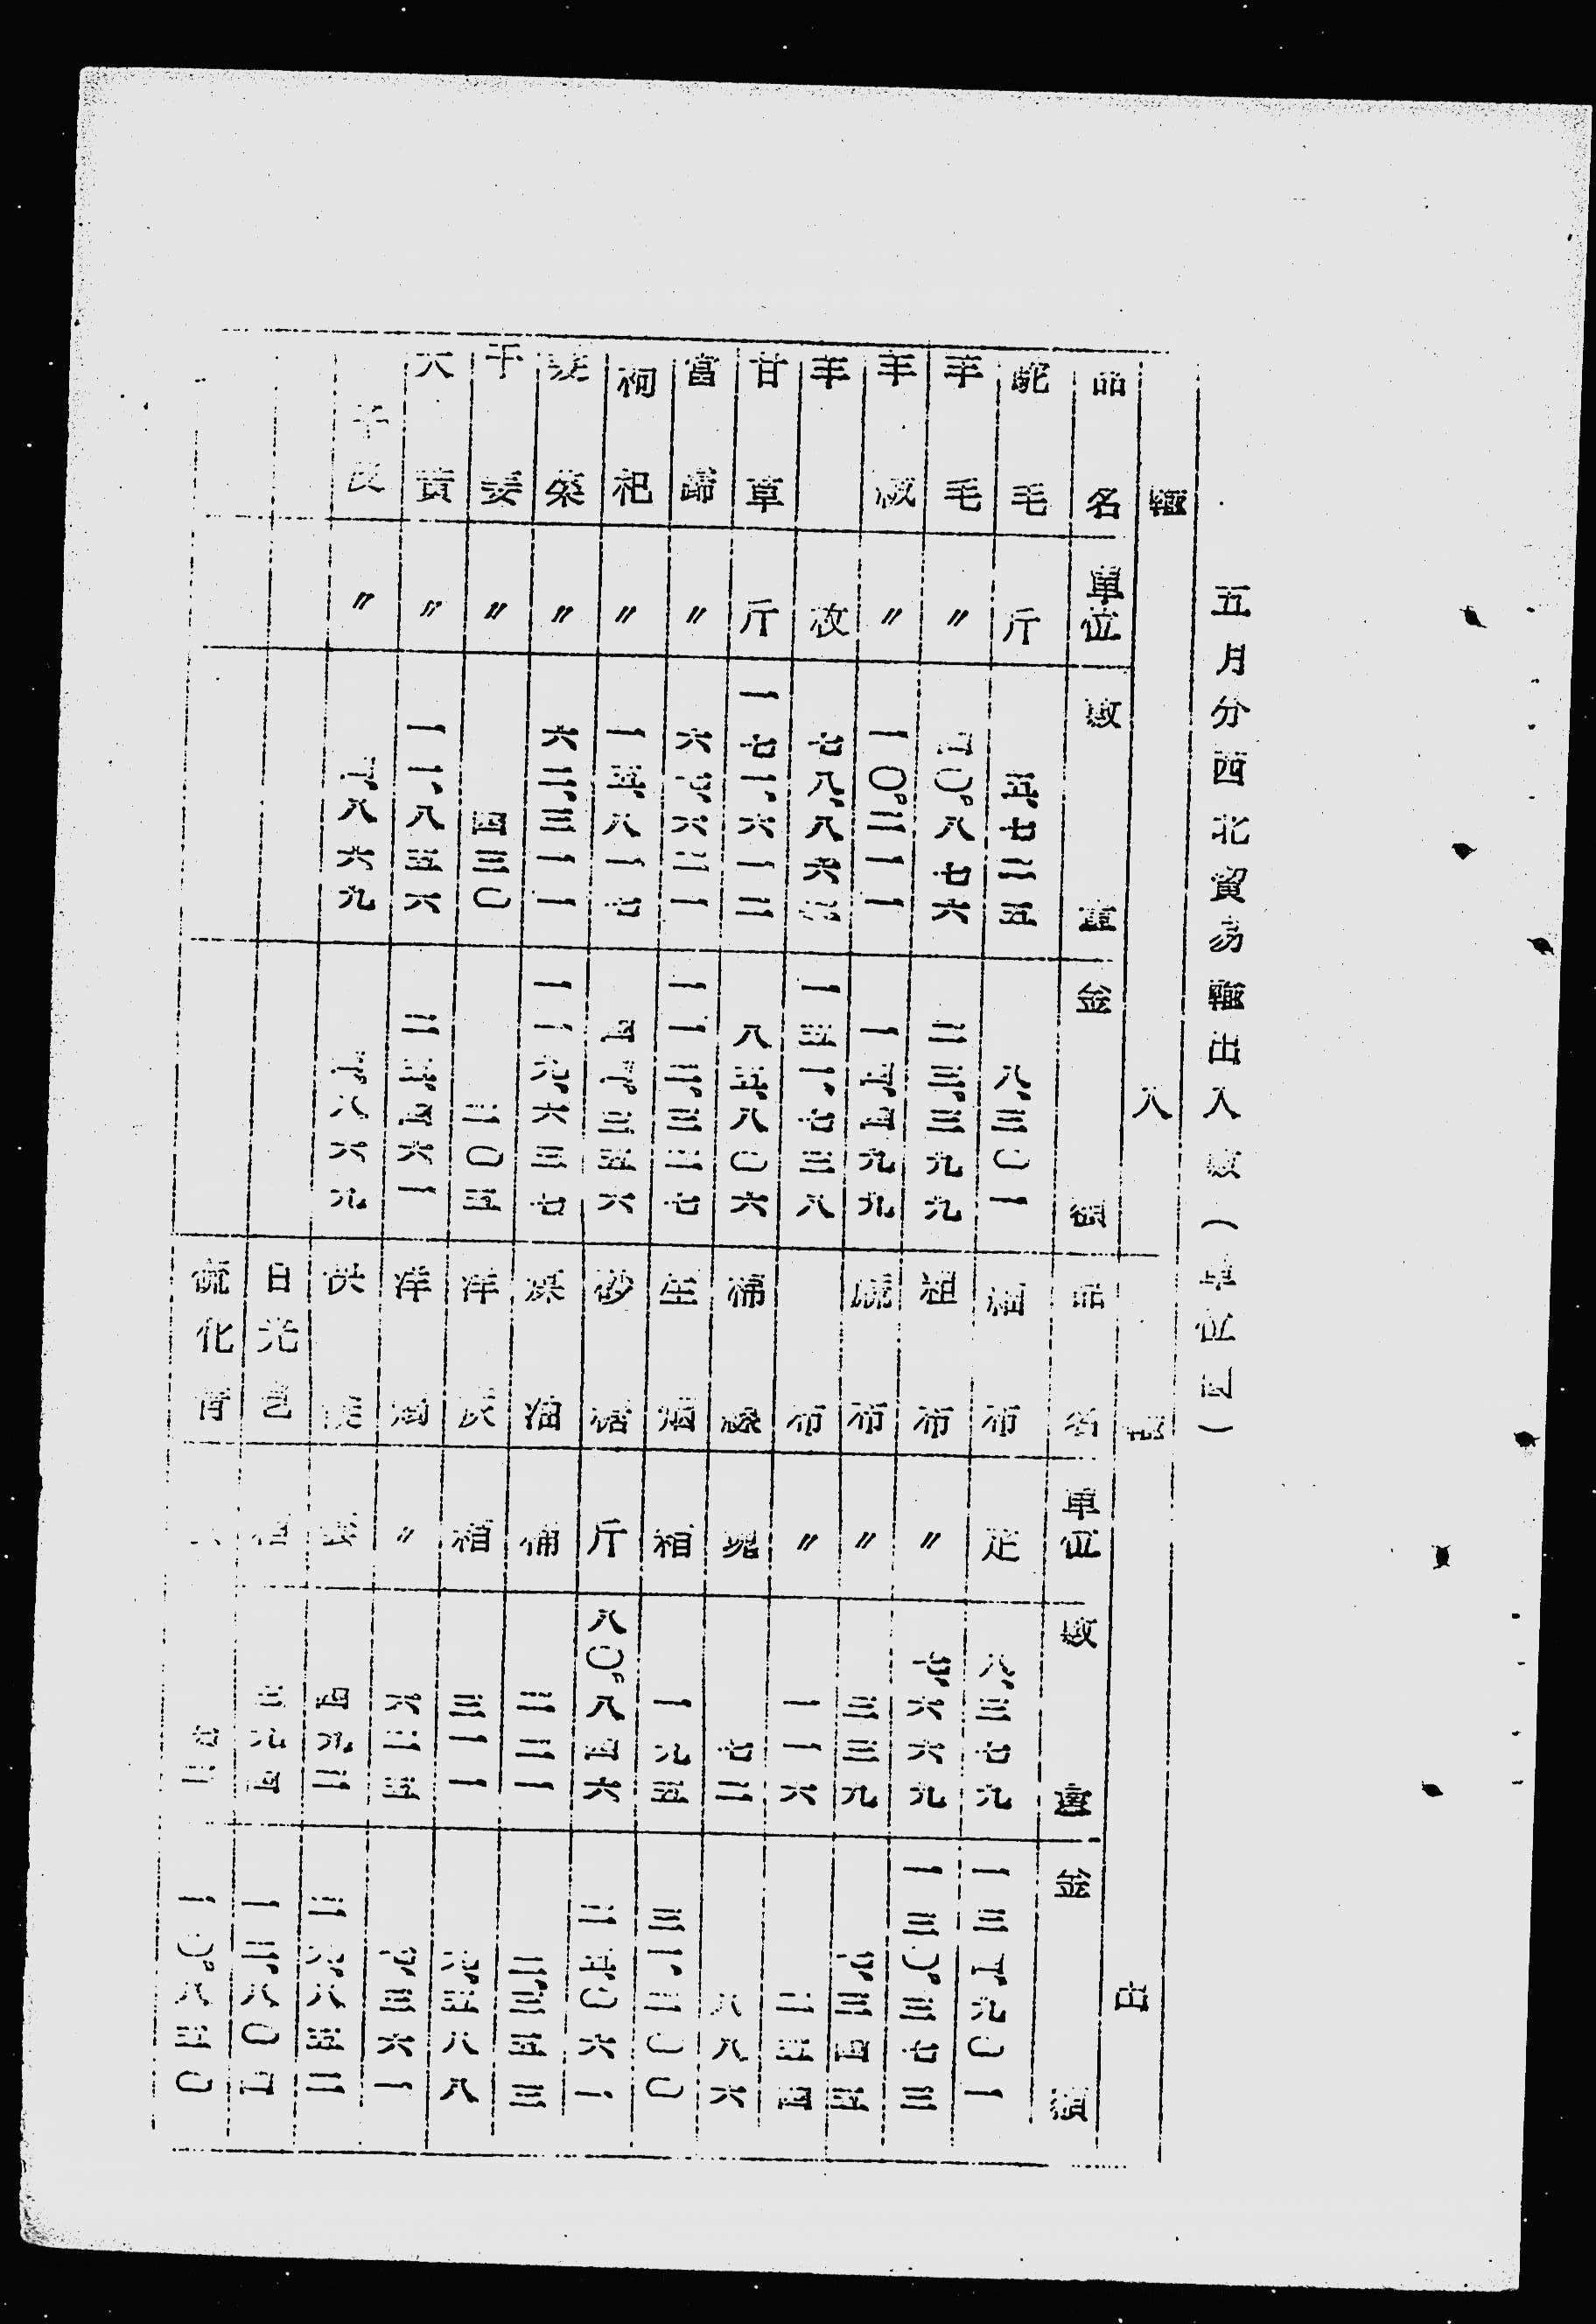 五月分西北貿易輸出入數(單位圓)
輸入 輸出
品名 單位 數量 金額 品名 單位 數量 金額
駝毛 斤 五、七二五 八、三〇一 細布 疋 八、三七九 九〇一
羊毛 〃 四〇、八七六 二三、三九九 粗布 〃 七、六六九 一三〇、三七三
羊絨 〃 一〇、二一一 一四、四九九 布 〃 三三九 三四五
羊 枚 七八、八六 一五一、七三八 布 〃 一一六 二五四
甘草 斤 一七一、六一二 八五、八〇六 棉線 塊 七二 八八六
當歸 〃 六七、六二一 一一二、三三七 生烟 箱 一九五 三一、二〇〇
枸杞 〃 一五、八一七 四一、三五六 砂糖 斤 八〇、八四六 二五、〇六一
髮菜 〃 六二、三一一 一一九、六三七 煤油 桶 二二一 二、三五三
干姜 〃 四三〇 二〇五 洋灰 箱 三一一 六、五八八
大黃 〃 一一、八五六 二三、四六一 洋燭 〃 六二五 七、三六一
皮 〃 八六九 八六九 快 袋 四九二 二六、八五二
日光皂 箱 三九四 一二、八〇四
硫化青 一〇、八五〇